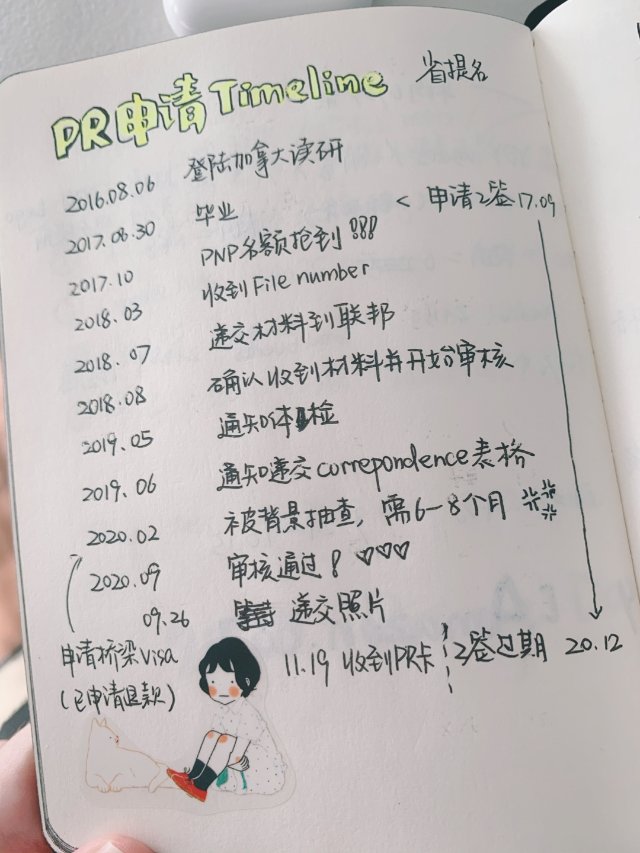 PR申请Timeline 省提名
2016.08.06 登陆加拿大读研
2017.08.30 毕业 < 申请2签17.09
2017.10 PNP名额抢到!!!
2018.03 收到File number
2018.07 递交材料到联邦
2018.08 确认收到材料并开始审核
2019.05 通知体检
2019.06 通知递交correpondence表格
2020.02 被背景抽查,需6-8个月
2020.09 审核通过! ♡♡♡
09.26 递交照片
申请桥梁Visa 11.19 收到PR卡 2签过期 20.12
(已申请退款)